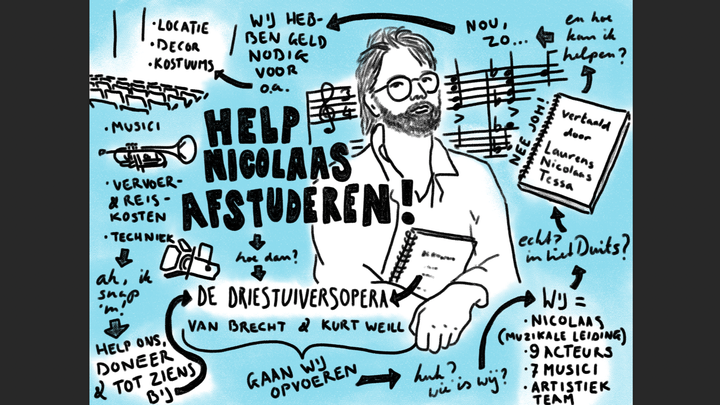 HELP
NICOLAAS
AFSTUDEREN!
hoe dan?
DE DRIESTUIVERSOPERA
VAN BRECHT & KURT WEILL
GAAN WIJ
OPVOEREN
huh?
wie is wij?
WIJ =
· NICOLAAS
(MUZIKALE LEIDING)
· 9 ACTEURS
· 7 MUSICI
· ARTISTIEK
TEAM
echt?
in het Duits?
NEE JOH!
vertaald
door
Laurens
Nicolaas
Tessa
en hoe
kan ik
helpen?
NOU,
ZO...
WIJ HEB-
BEN GELD
NODIG
VOOR
o.a.
· LOCATIE
· DECOR
· KOSTUUMS
· MUSICI
· VERVOER-
& REIS-
KOSTEN
· TECHNIEK
ah, ik
snap
'm!
HELP ONS,
DONEER
& TOT ZIENS
BIJ